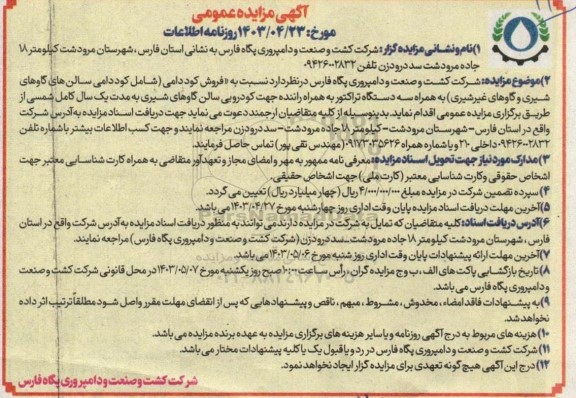 آگهی مزایده عمومی
مورخ: ۱۴۰۳/۰۴/۲۳ روزنامه اطلاعات
۱) نام و نشانی مزایده گزار: شرکت کشت و صنعت و دامپروری پگاه فارس به نشانی استان فارس، شهرستان مرودشت کیلومتر ۱۸
جاده مرودشت سد درودزن تلفن ۰۹۴۲۶۰۰۲۸۳۲
۲) موضوع مزایده: شرکت کشت و صنعت و دامپروری پگاه فارس در نظر دارد نسبت به «فروش کود دامی (شامل کود دامی سالن های گاوهای
شیری و گاوهای غیرشیری) به همراه سه دستگاه تراکتور به همراه راننده جهت کودروبی سالن گاوهای شیری به مدت یک سال کامل شمسی از
طریق برگزاری مزایده عمومی اقدام نماید. بدینوسیله از کلیه متقاضیان ارجمند دعوت می نماید جهت دریافت اسناد مزایده به آدرس شرکت
واقع در استان فارس - شهرستان مرودشت - کیلومتر ۱۸ جاده مرودشت - سد درودزن مراجعه نمایند و جهت کسب اطلاعات بیشتر با شماره تلفن
۰۹۴۲۶۰۰۲۸۳۲ داخلی ۲۱۰ و یا شماره همراه ۰۹۱۷۳۰۳۵۶۲۶ (مهندس تقی پور) تماس حاصل فرمایند.
۳) مدارک مورد نیاز جهت تحویل اسناد مزایده: معرفی نامه ممهور به مهر و امضای مجاز و تعهدآور متقاضی به همراه کارت شناسایی معتبر جهت
اشخاص حقوقی و کارت شناسایی معتبر (کارت ملی) جهت اشخاص حقیقی.
۴) سپرده تضمین شرکت در مزایده مبلغ ۴/۰۰۰/۰۰۰/۰۰۰ ریال (چهار میلیارد ریال) تعیین می گردد.
۵) آخرین مهلت دریافت اسناد مزایده پایان وقت اداری روز چهارشنبه مورخ ۱۴۰۳/۰۴/۲۷ می باشد.
۶) آدرس دریافت اسناد: کلیه متقاضیان که تمایل به شرکت در مزایده دارند می توانند به منظور دریافت اسناد مزایده به آدرس شرکت واقع در استان
فارس، شهرستان مرودشت کیلومتر ۱۸ جاده مرودشت سد درودزن (شرکت کشت و صنعت و دامپروری پگاه فارس) مراجعه نمایند.
۷) آخرین مهلت ارائه پیشنهادات پایان وقت اداری روز شنبه مورخ ۱۴۰۳/۰۵/۰۶ می باشد.
۸) تاریخ بازگشایی پاکت های الف، ب و ج مزایده گران، رأس ساعت ۱۰:۰۰ صبح روز یکشنبه مورخ ۱۴۰۳/۰۵/۰۷ در محل قانونی شرکت کشت و صنعت
و دامپروری پگاه فارس می باشد.
۹) به پیشنهادات فاقد امضاء، مخدوش، مشروط، مبهم، ناقص و پیشنهادهایی که پس از انقضای مهلت مقرر واصل شود مطلقاً ترتیب اثر داده
نخواهد شد.
۱۰) هزینه های مربوط به درج آگهی روزنامه و یا سایر هزینه های برگزاری مزایده به عهده برنده مزایده می باشد.
۱۱) شرکت کشت و صنعت و دامپروری پگاه فارس در رد و یا قبول یک یا کلیه پیشنهادات مختار می باشد.
۱۲) درج این آگهی هیچ گونه تعهدی برای مزایده گزار ایجاد نخواهد نمود.
شرکت کشت و صنعت و دامپروری پگاه فارس